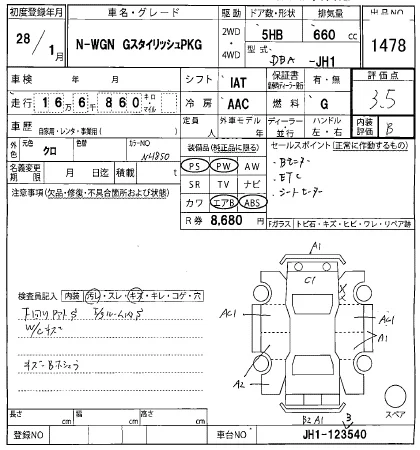 初度登録年月 車名・グレード 駆動 ドア数・形状 排気量 出品NO
28/1月 N-WGN GスタイリッシュPKG 2WD・4WD 5HB 660cc 1478
型式 DBA-JH1
車検 年 月 シフト IAT 保証書 有・無 評価点
走行 16万6千860 キロ・マイル 冷房 AAC 燃料 G 3.5
車歴 自家用・レンタ・事業用( ) 定員 人 外車モデル 年 ディーラー・並行 ハンドル 左・右 内装評価 B
外色 元色 クロ 色替 カラーNO N4850
装備品(純正品に限る) セールスポイント(正常に作動するもの)
名義変更期限 月 日迄 積載 t
PS PW AW
SR TV ナビ
カワ エアB ABS
・Bモニター
・ETC
・シートヒーター
注意事項(欠品・修復・不具合箇所および状態)
R券 8,680円 Fガラス トビ石・キズ・ヒビ・ワレ・リペア跡
検査員記入 内装 汚レ・スレ・キズ・キレ・コゲ・穴
W/Cキズ
A1
C1
AC1 AC1
A1
A2
B2 A1 3
スペア
長さ cm 幅 cm 高さ cm
登録NO 車台NO JH1-123540